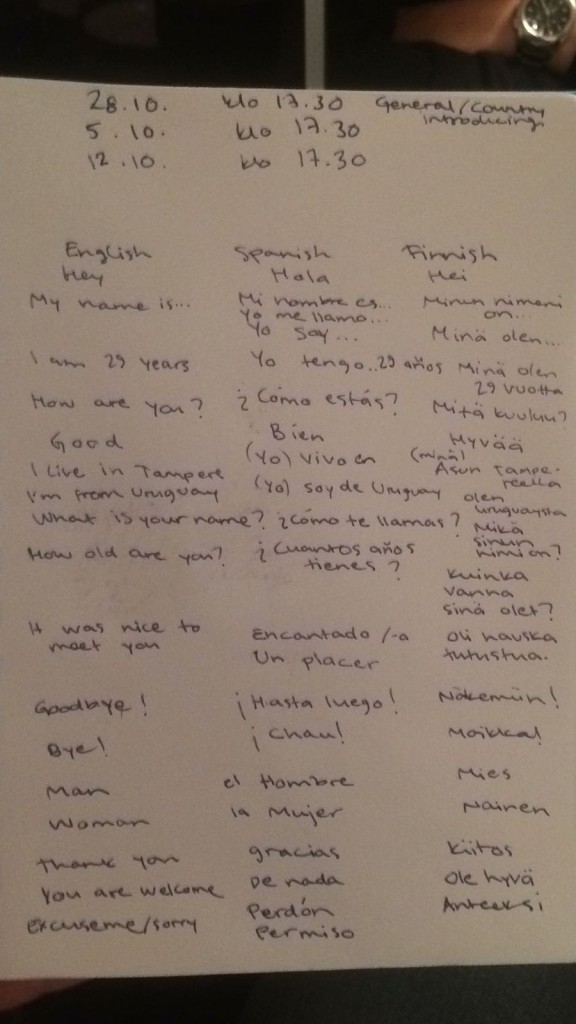 28.10. klo 17.30 General/Country
introducing
5.10. klo 17.30
12.10. klo 17.30
English Spanish Finnish
Hey Hola Hei
My name is... Mi nombre es... Minun nimeni
Yo me llamo... on...
Yo soy... Minä olen...
I am 29 years Yo tengo..29 años Minä olen
29 vuotta
How are you? ¿Cómo estás? Mitä kuuluu?
Good Bien Hyvää
I live in Tampere (Yo) vivo en (minä) Asun Tampe-
reella
I'm from Uruguay (Yo) soy de Uruguay olen
uruguaysta
What is your name? ¿Cómo te llamas? Mikä
sinun
nimi on?
How old are you? ¿Cuantos años
tienes?
Kuinka
vanna
sinä olet?
It was nice to
meet you
Encantado/-a
Un placer
Oli hauska
tutustua.
Goodbye! ¡Hasta luego! Näkemiin!
Bye! ¡Chau! Moikka!
Man el Hombre Mies
Woman la Mujer Nainen
Thank you gracias Kiitos
You are welcome De nada Ole hyvä
Excuseme/sorry Perdón Anteeksi
Permiso